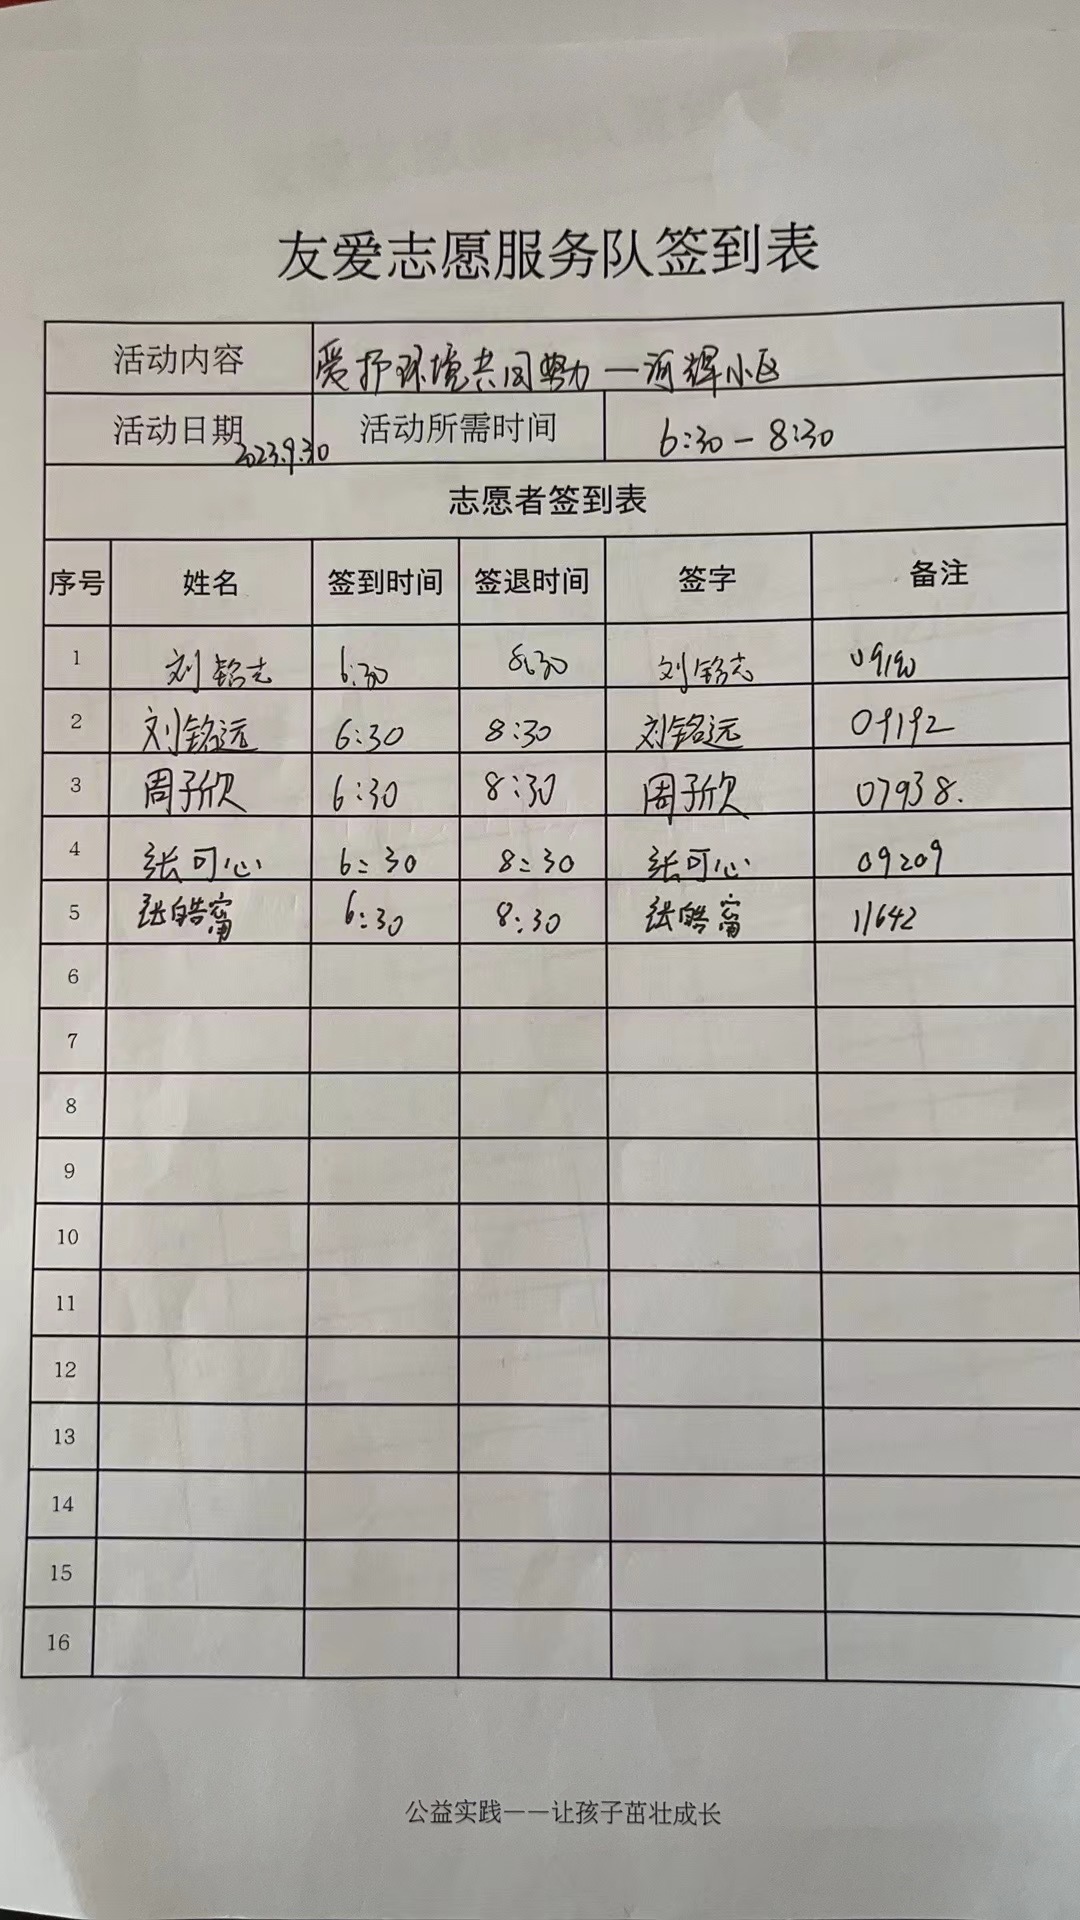 友爱志愿服务队签到表
活动内容 爱护环境共同努力—河辉小区
活动日期 2023.9.30 活动所需时间 6:30-8:30
志愿者签到表
序号 姓名 签到时间 签退时间 签字 备注
1 刘铭志 6:30 8:30 刘铭志 09190
2 刘铭远 6:30 8:30 刘铭远 09192
3 周子欣 6:30 8:30 周子欣 07938.
4 张可心 6:30 8:30 张可心 09209
5 张皓甯 6:30 8:30 张皓甯 11642
6
7
8
9
10
11
12
13
14
15
16
公益实践——让孩子茁壮成长